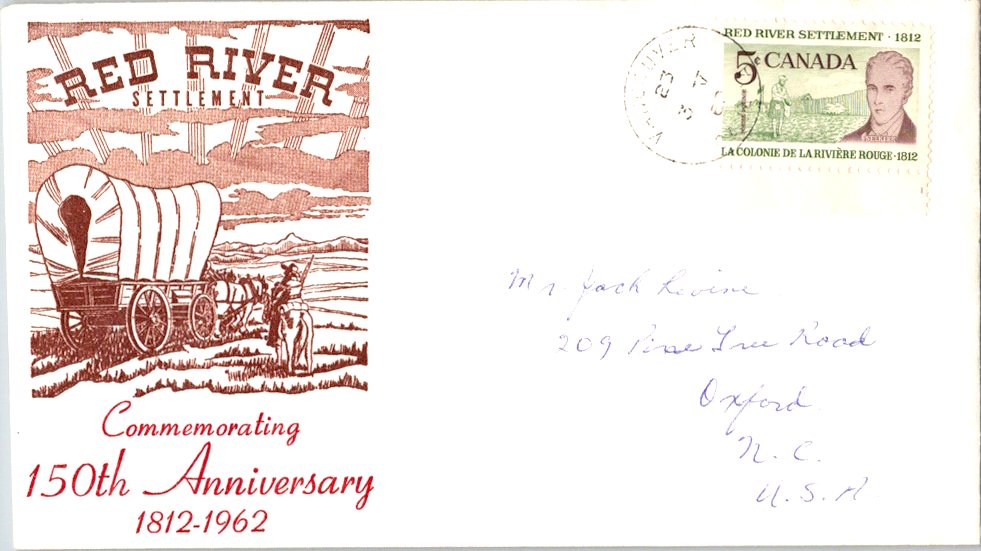 RED RIVER
SETTLEMENT
Commemorating
150th Anniversary
1812-1962
VANCOUVER
23
RED RIVER SETTLEMENT · 1812
5¢ CANADA
SELKIRK
LA COLONIE DE LA RIVIÈRE ROUGE · 1812
Mr. Jack Levine
209 Pine Tree Road
Oxford
N. C.
U. S. A.